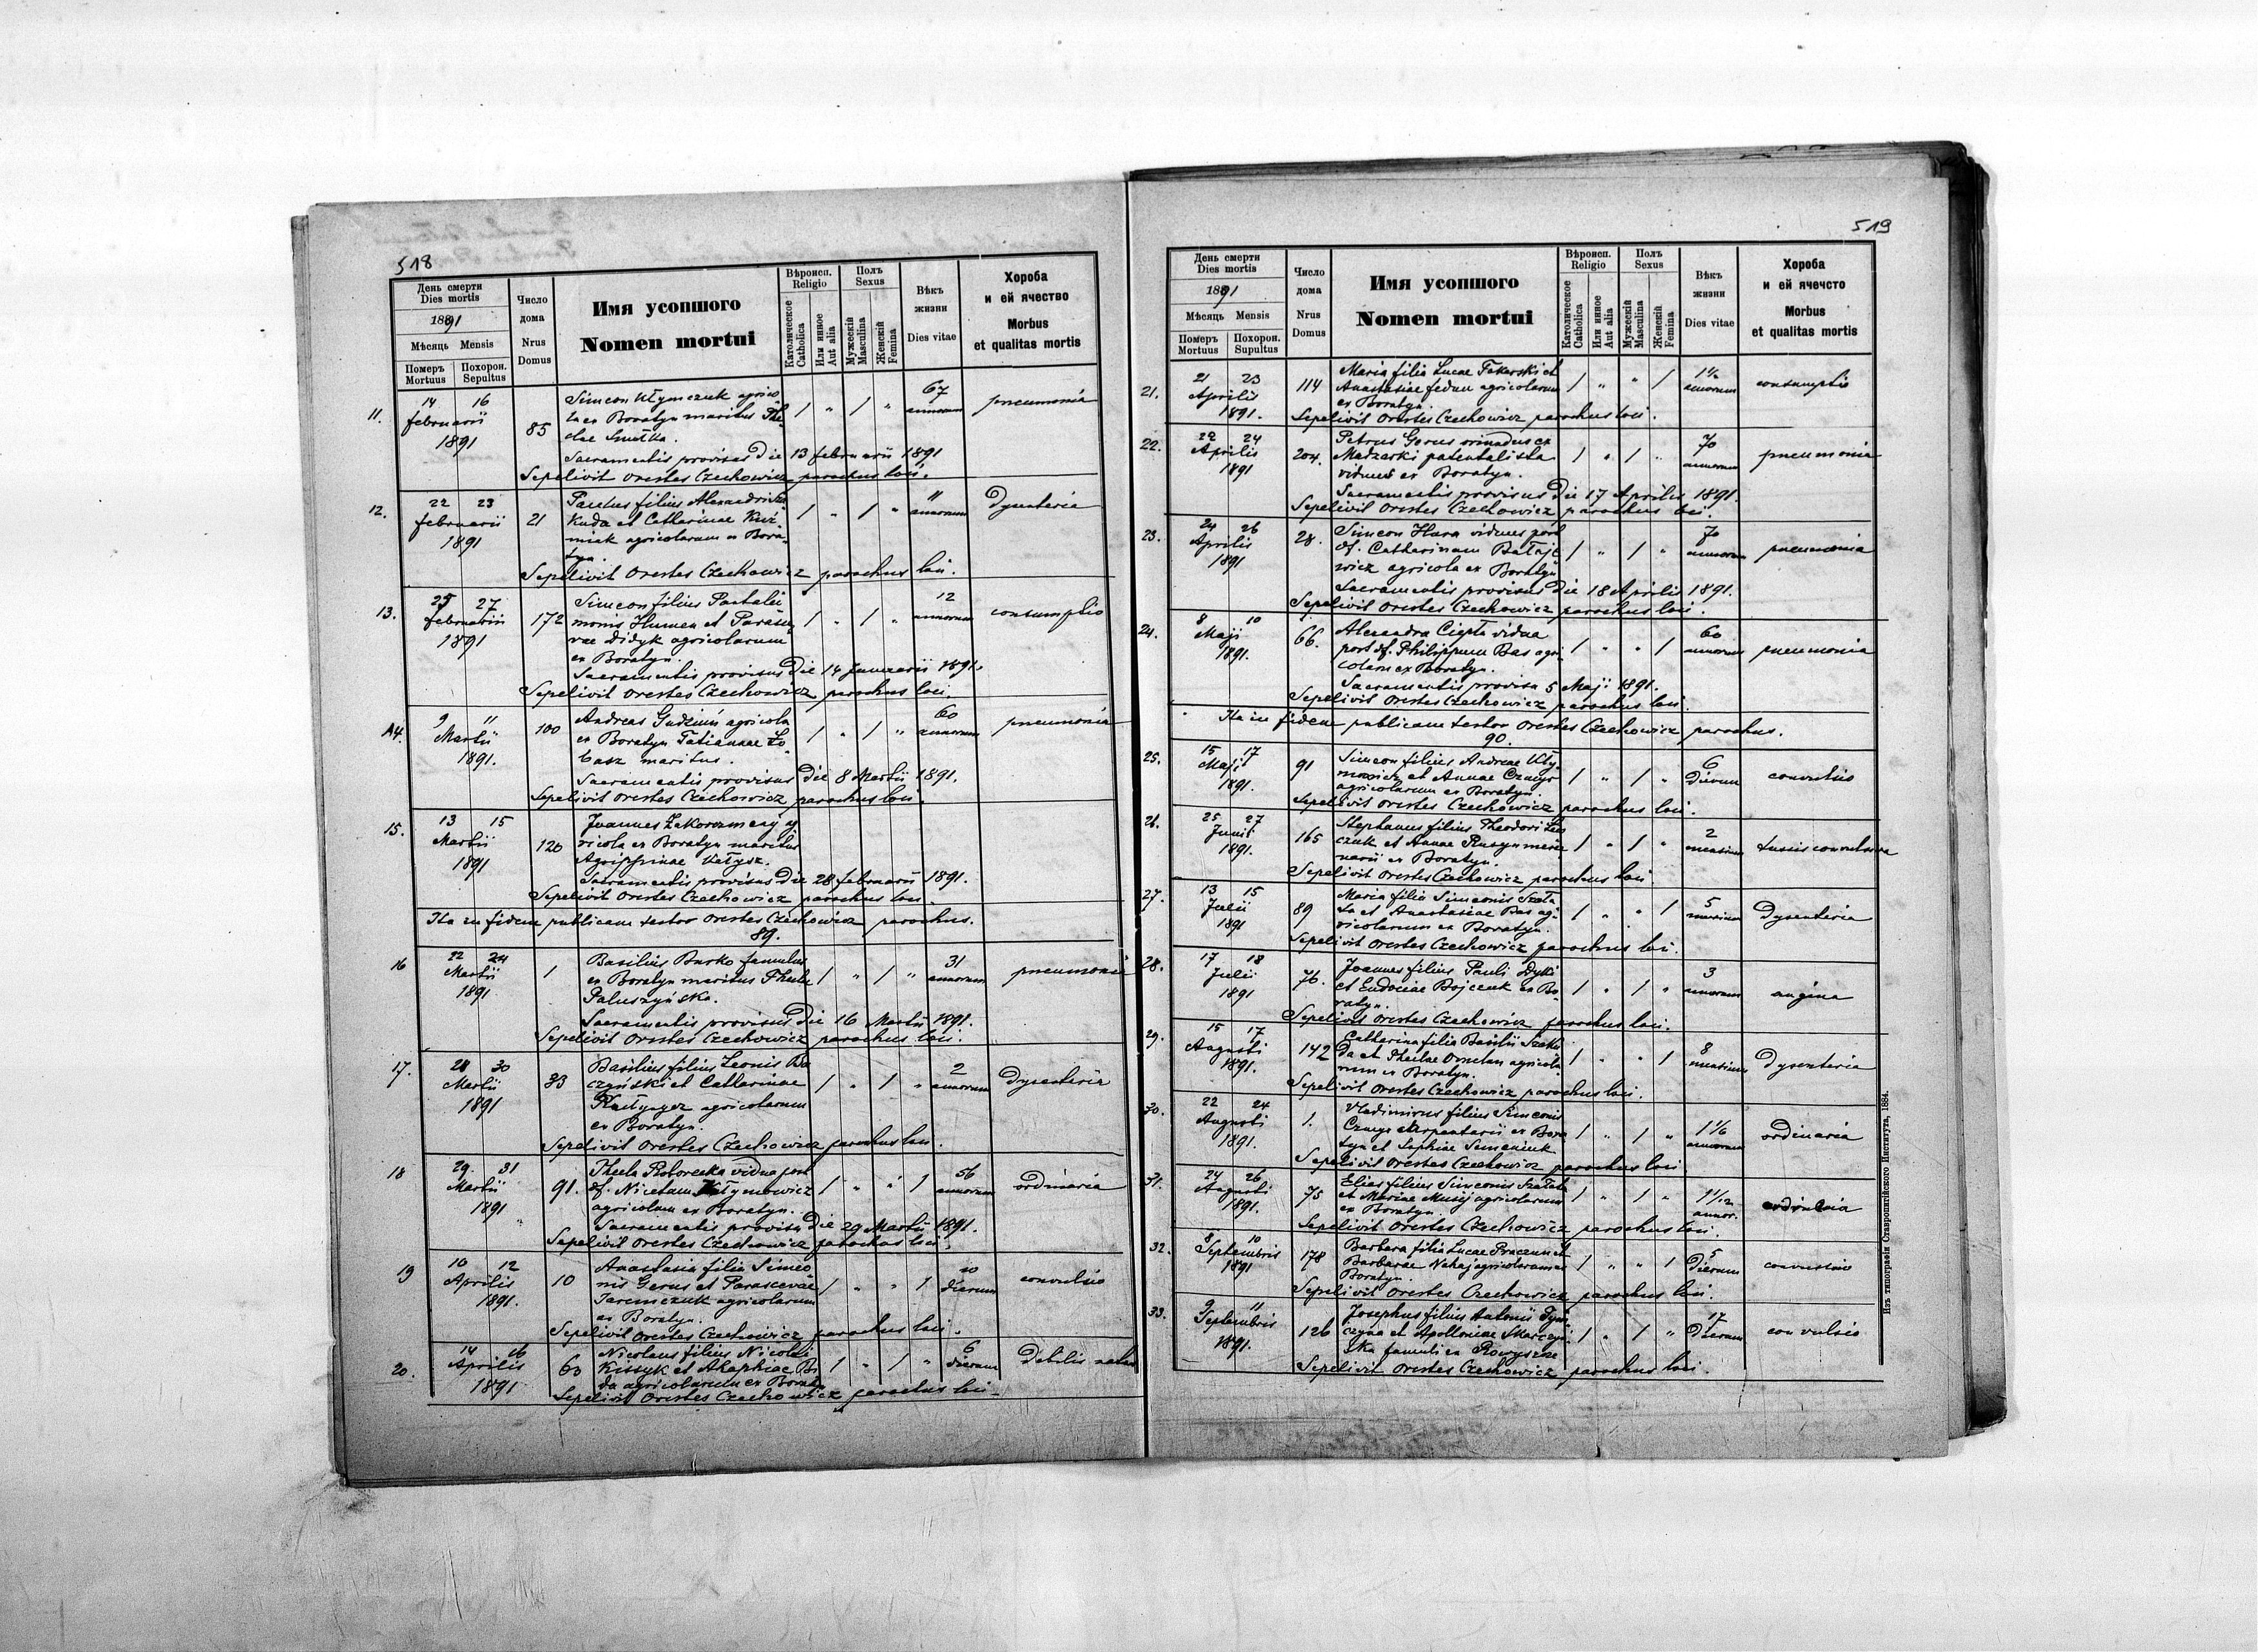 518
День смерти
Dies mortis
1891
Мѣсяць Mensis
Померъ
Mortuus
Похорон.
Sepultus
Число
дома
Nrus
Domus
Имя усопшого
Nomen mortui
Вѣроисп.
Religio
Католическое
Catholica
Или инное
Aut alia
Полъ
Sexus
Мужескій
Masculina
Женскій
Femina
Вѣкъ
жизни
Dies vitae
Хороба
и ей ячество
Morbus
et qualitas mortis
11.
14 16
februarii
1891
85
Simeon Kłymczuk agrico-
la ex Boratyn maritus The-
clae
1 " 1 "
67
annorum
pneumonia
Sacramentis provisus die 13 februarii 1891
Sepelivit Orestes Czechowicz parochus loci.
12.
22 23
februarii
1891
21
filius Alexandri
et Catharinae Kuź-
miak agricolarum ex Bora-
tyn.
1 " 1 "
11
annorum
Dysenteria
Sepelivit Orestes Czechowicz parochus loci.
13.
25 27
februarii
1891
172
Simeon filius Pantalei
monis Humen et Parasce-
vae Didyk agricolarum
ex Boratyn.
1 " 1 "
12
annorum
consumptio
Sacramentis provisus die 14 Januarii 1891.
Sepelivit Orestes Czechowicz parochus loci.
14.
9 11
Martii
1891.
100
Andreas agricola
ex Boratyn Tatiannae
maritus.
1 " 1 "
60
annorum
pneumonia
Sacramentis provisus die 8 Martii 1891.
Sepelivit Orestes Czechowicz parochus loci.
15.
13 15
Martii
1891
120
Joannes ag
ricola ex Boratyn maritus
Agrippinae
Sacramentis provisus die 28 februarii 1891.
Sepelivit Orestes Czechowicz parochus loci.
Ita in fidem publicam testor Orestes Czechowicz parochus.
89.
16
22 24
Martii
1891
1
Basilius Burko famulus
ex Boratyn maritus Theclae
Paluszyńska.
1 " 1 "
31
annorum
pneumonia
Sacramentis provisus die 16 Martii 1891.
Sepelivit Orestes Czechowicz parochus loci.
17.
28 30
Martii
1891
33
Basilius filius Leonis Ba
czyński et Catharinae
agricolarum
ex Boratyn.
1 " 1 "
2
annorum
Dysenteria
Sepelivit Orestes Czechowicz parochus loci.
18
29 31
Martii
1891
91.
Thecla vidua post
df. Nicetam Kłymowicz
agricolam ex Boratyn.
1 " " 1
56
annorum
ordinaria
Sacramentis provisa die 29 Martii 1891.
Sepelivit Orestes Czechowicz parochus loci.
19
10 12
Aprilis
1891.
10
Anastasia filia Simeo
nis Gerus et Parascevae
Jaremczuk agricolarum
ex Boratyn.
1 " " 1
10
dierum
convulsio
Sepelivit Orestes Czechowicz parochus loci.
20.
14 16
Aprilis
1891
63
Nicolaus filius Nicolai
et Ahaphiae Bi
da agricolarum ex Boratyn
1 " 1 "
6
dierum
Debilis natus
Sepelivit Orestes Czechowicz parochus loci.
519
День смерти
Dies mortis
1891
Мѣсяць Mensis
Померъ
Mortuus
Похорон.
Supultus
Число
дома
Nrus
Domus
Имя усопшого
Nomen mortui
Вѣроисп.
Religio
Католическое
Catholica
Или инное
Aut alia
Полъ
Sexus
Мужескій
Masculina
Женскій
Femina
Вѣкъ
жизни
Dies vitae
Хороба
и ей ячечсто
Morbus
et qualitas mortis
21.
21 23
Aprilis
1891.
114
Maria filia Lucae Tokarski et
Anastasiae fedun agricolarum
ex Boratyn.
1 " " 1
annorum
consumptio
Sepelivit Orestes Czechowicz parochus loci.
22.
22 24
Aprilis
1891
204.
Petrus Gerus oriundus ex
patentalista
viduus ex Boratyn.
1 " 1 "
70
annorum
pneumonia
Sacramentis provisus die 17 Aprilis 1891.
Sepelivit Orestes Czechowicz parochus loci.
23.
24 26
Aprilis
1891
28.
Simeon Hara viduus post
df. Catharinam Bałaje
wicz agricola ex Boratyn
1 " 1 "
70
annorum
pneumonia
Sacramentis provisus die 18 Aprilis 1891.
Sepelivit Orestes Czechowicz parochus loci.
24.
8 10
Maji
1891.
66.
Alexandra Ciepła vidua
post df. Philippum Bas agri
colam ex Boratyn.
1 " " 1
60
annorum
pneumonia
Sacramentis provisa 5 Maji 1891.
Sepelivit Orestes Czechowicz parochus loci.
Ita in fidem publicam testor Orestes Czechowicz parochus.
90.
25.
15 17
Maji
1891.
91
Simeon filius Andreae Kły-
mowicz et Annae Czmyr
agricolarum ex Boratyn.
1 " 1 "
6
dierum
convulsio
Sepelivit Orestes Czechowicz parochus loci.
26.
25 27
Junii
1891.
165
Stephanus filius Theodori
czuk et Annae Rusyn merce
narii ex Boratyn.
1 " 1 "
2
mensium
tussis convulsiva
Sepelivit Orestes Czechowicz parochus loci.
27.
13 15
Julii
1891
89
Maria filia Simeonis Szała
ta et Anastasiae Bas ag-
ricolarum ex Boratyn.
1 " " 1
5
mensium
Dysenteria
Sepelivit Orestes Czechowicz parochus loci.
28.
17 18
Julii
1891
76.
Joannes filius Pauli
et Eudociae Bojczuk ex Bo-
ratyn.
1 " 1 "
3
annorum
angina
Sepelivit Orestes Czechowicz parochus loci.
29.
15 17
Augusti
1891.
142
Catharina filia Basilii
da et Theclae agricola
rum ex Boratyn.
1 " " 1
8
mensium
Dysenteria
Sepelivit Orestes Czechowicz parochus loci.
30.
22 24
Augusti
1891.
1.
Vladimirus filius Simeonis
Czmyr carpentarii ex Bora
tyn et Sophiae Semeniuk
1 " 1 "
1 1/6
annorum
ordinaria
Sepelivit Orestes Czechowicz parochus loci
31.
24 26
Augusti
1891.
75
Elias filius Simeonis Szałata
et Mariae Musij agricolarum
ex Boratyn.
1 " 1 "
1 1/12
annor.
ordinaria
Sepelivit Orestes Czechowicz parochus loci.
32.
8 10
Septembris
1891
178
Barbara filia Lucae et
Barbarae Nahaj agricolarum ex
Boratyn.
1 " " 1
5
dierum
convulsio
Sepelivit Orestes Czechowicz parochus loci.
33.
9 11
Septembris
1891.
126
Josephus filius Antonii Tym-
czyna et Apolloniae
ska famuli ex
1 " 1 "
17
dierum
convulsio
Sepelivit Orestes Czechowicz parochus loci.
Изъ типографіи Ставропигійского Института, 1884.